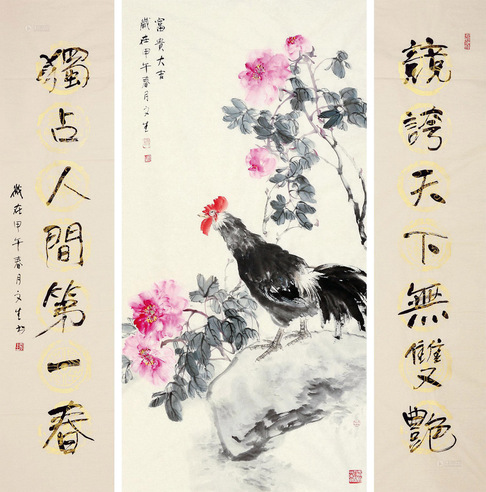 競誇天下無雙艷
富貴大吉
歲在甲午春月文生
獨占人間第一春
歲在甲午春月文生